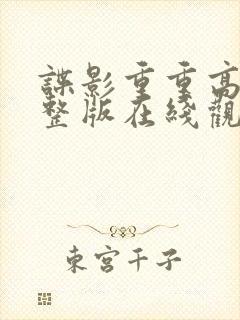 諜影重重高
整版在綫觀
東宮千子